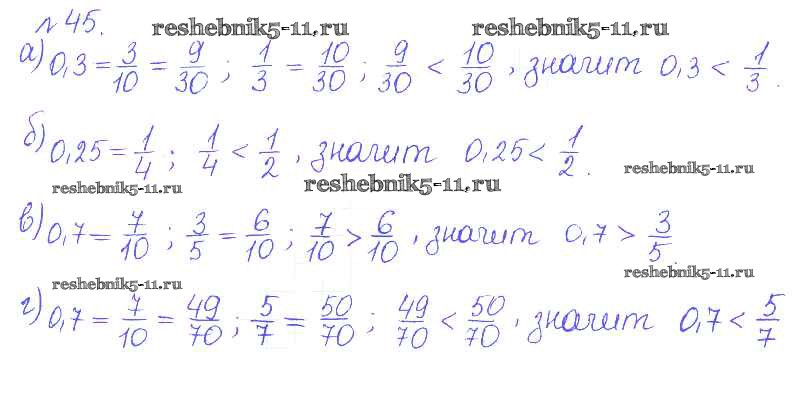 №45. reshebnik5-11.ru reshebnik5-11.ru
а) 0,3 = 3/10 = 9/30 ; 1/3 = 10/30 ; 9/30 < 10/30 , значит 0,3 < 1/3 .
б) 0,25 = 1/4 ; 1/4 < 1/2 , значит 0,25 < 1/2 .
reshebnik5-11.ru
reshebnik5-11.ru reshebnik5-11.ru
в) 0,7 = 7/10 ; 3/5 = 6/10 ; 7/10 > 6/10 , значит 0,7 > 3/5 .
reshebnik5-11.ru
reshebnik5-11.ru
г) 0,7 = 7/10 = 49/70 ; 5/7 = 50/70 ; 49/70 < 50/70 , значит 0,7 < 5/7